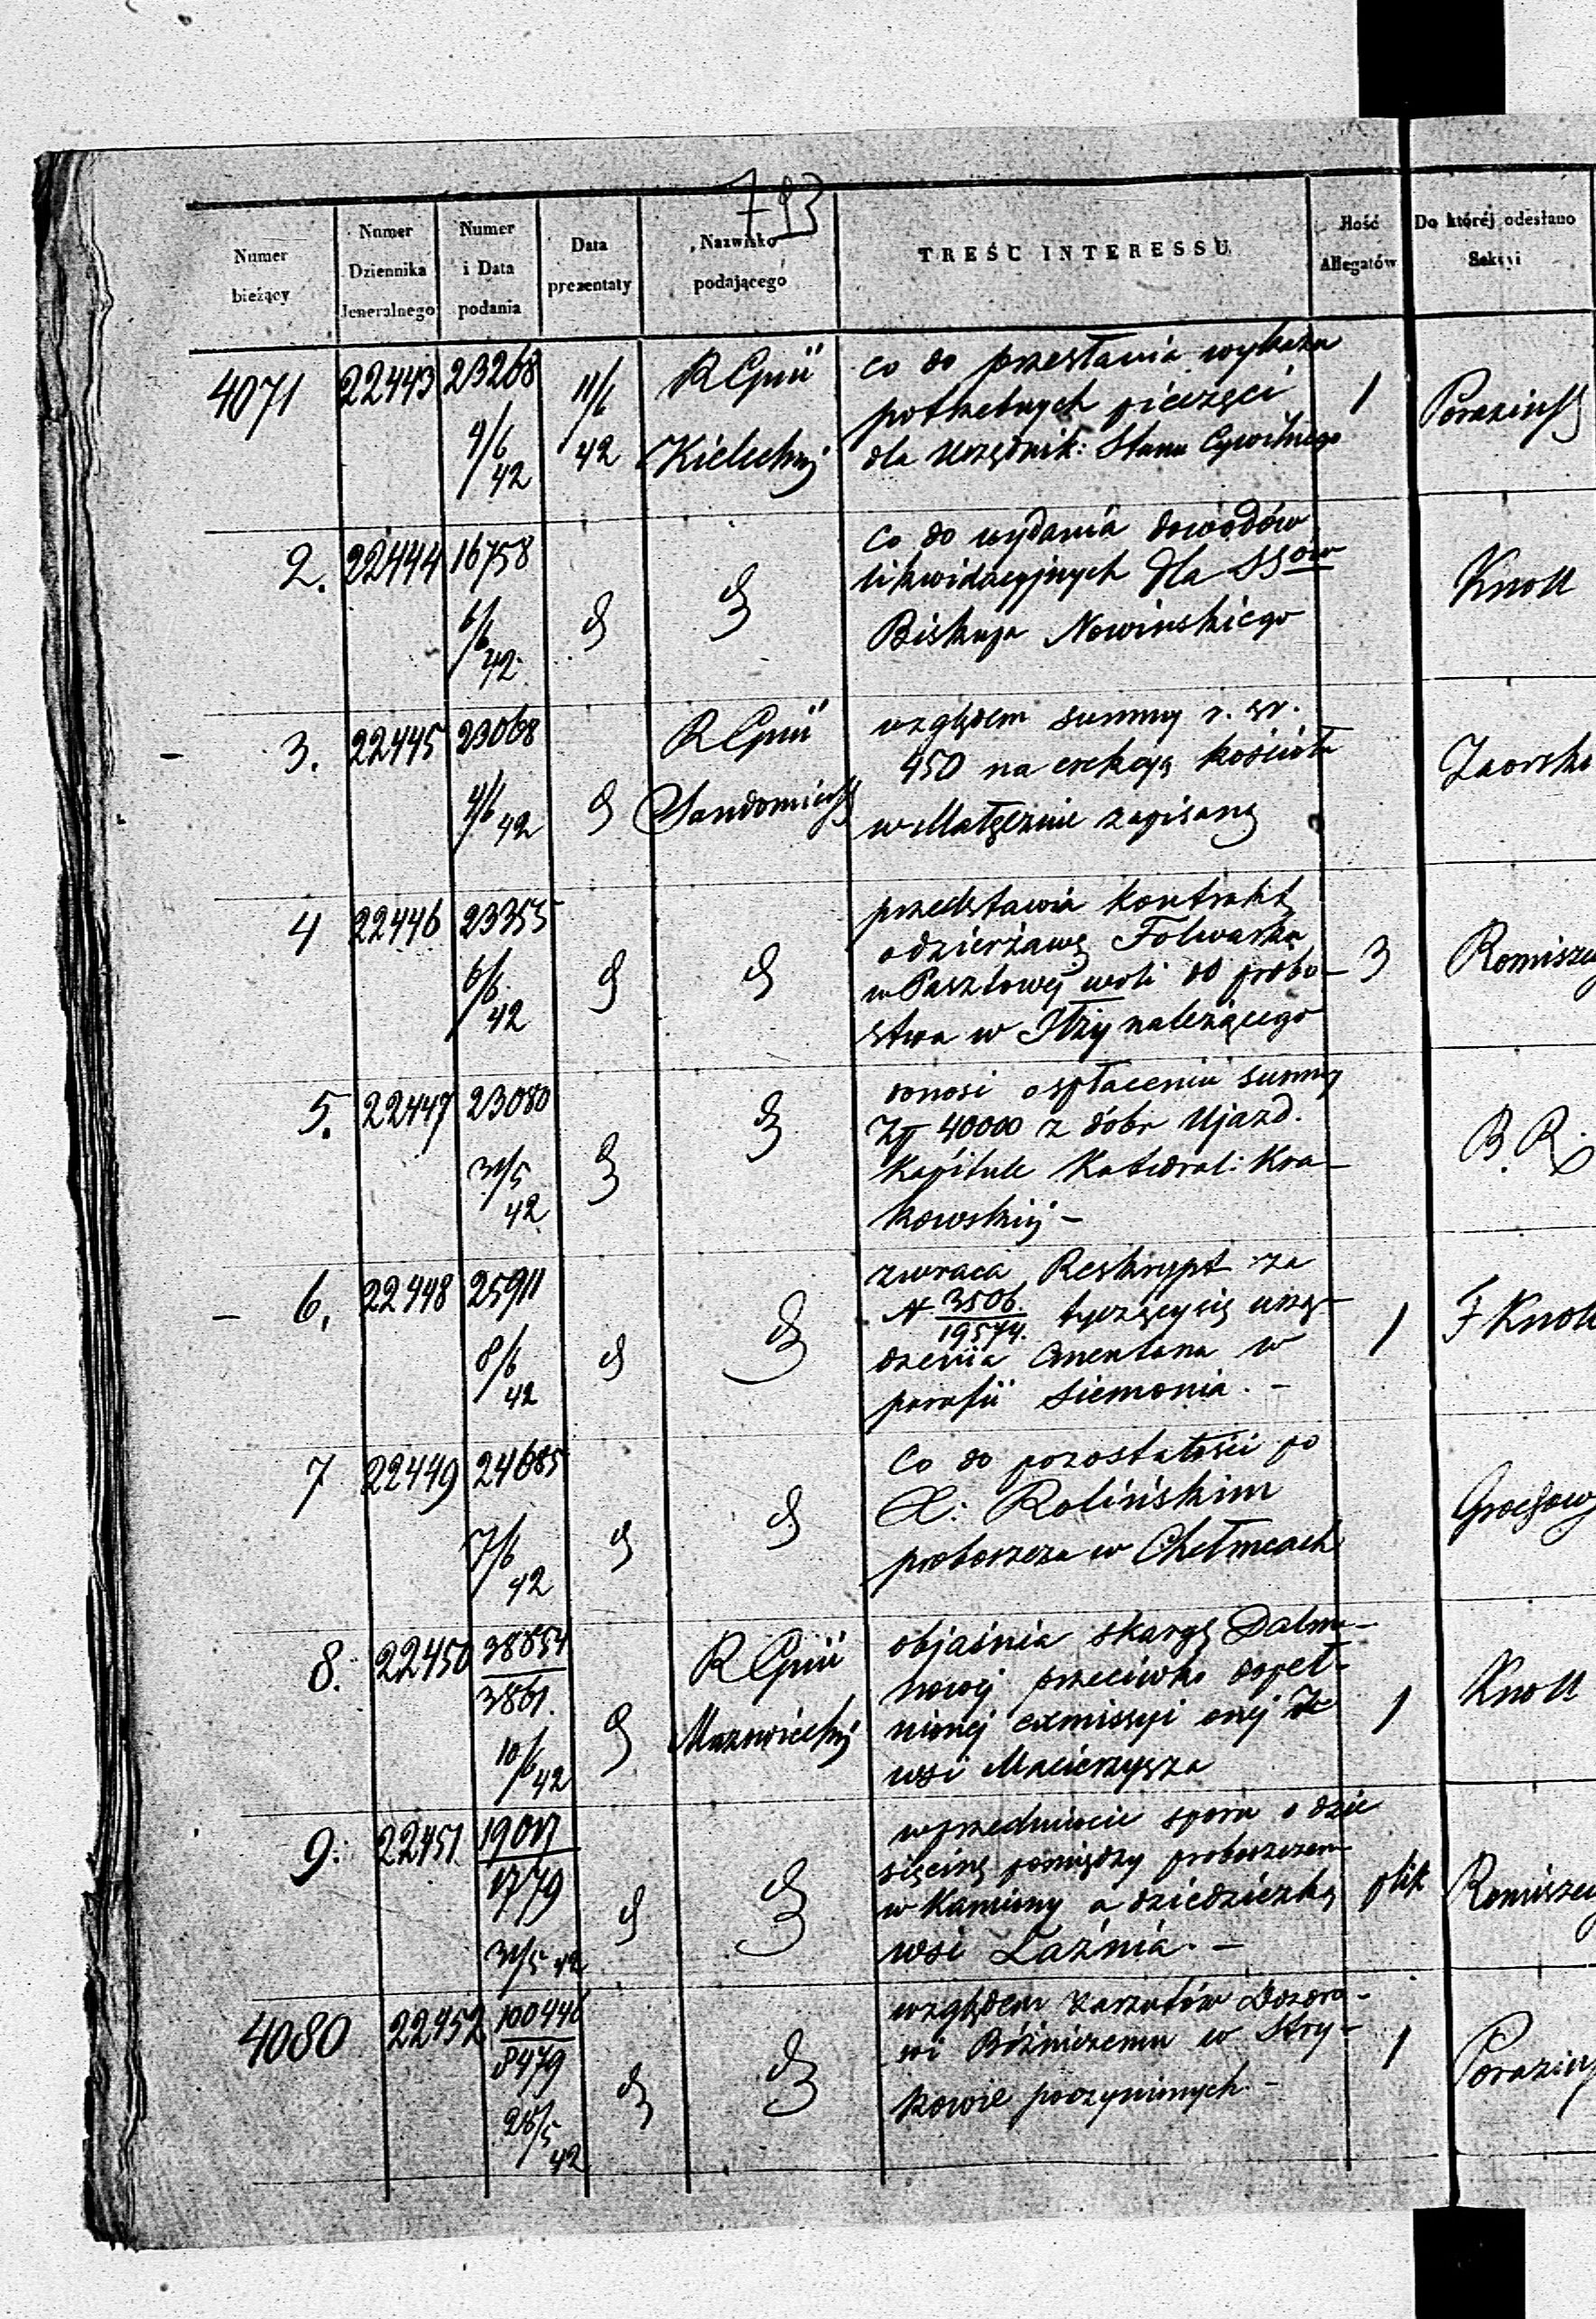 793
Numer
bieżący
Numer
Dziennika
Jeneralnego
Numer
i Data
podania
Data
prezentaty
Nazwisko
podającego
TREŚĆ INTERESSU
Ilość
Allegatów
Do któréj odesłano
Sekcyi
4071 22443 23268 9/6 42 11/6 42
R Gnii
Kieleckiej
co do przesłania wykazu
potrzebnych pieczęci
dla Urzędnik: Stanu Cywilnego
1
2. 22444 16758 6/6 42
Co do wydania dowodów
likwidacyjnych dla SSów
Biskupa Nowinskiego
Knoll
3. 22445 23068 9/6 42
R Gnii
względem summy r. sr.
450 na erekcyą kościoła
zapisaną
4 22446 23355 6/6 42
przedstawia kontrakt
o dzierżawę Folwarku
w Pasztowej woli do probo-
stwa w Iłży należącego
3
5. 22447 23080 31/5 42
donosi o spłaceniu summy
Zł 40000 z dóbr Ujazd.
Kapitule Katedral: Kra-
kowskiej –
B. R.
– 6. 22448 25911 8/6 42
zwraca Reskrypt za
N 3506/19574. tyczący się urzą-
dzenia Cmentarza w
parafii Siemonia. –
1
F Knoll
7 22449 24685 7/6 42
Co do pozostałości po
X: Rolińskim
proboszczu w Chełmcach
8. 22450 38854/3861. 10/6 42
R Gnii
Mazowieckiej
objaśnia skargę
przeciwko dopeł-
nionej exmissyi onej ze
wsi Macierzysza
1
Knoll
9. 22451 19017/1779 31/5 42
w przedmiocie sporu o dzie
sięcinę pomiędzy proboszczem
w Kamiony a dziedziczką
wsi Łaźnia. –
plik
4080 22452 100446/8479 28/5 42
względem zarzutów Dozoro-
wi Bóżniczemu w Stry-
kowie poczynionych –
1